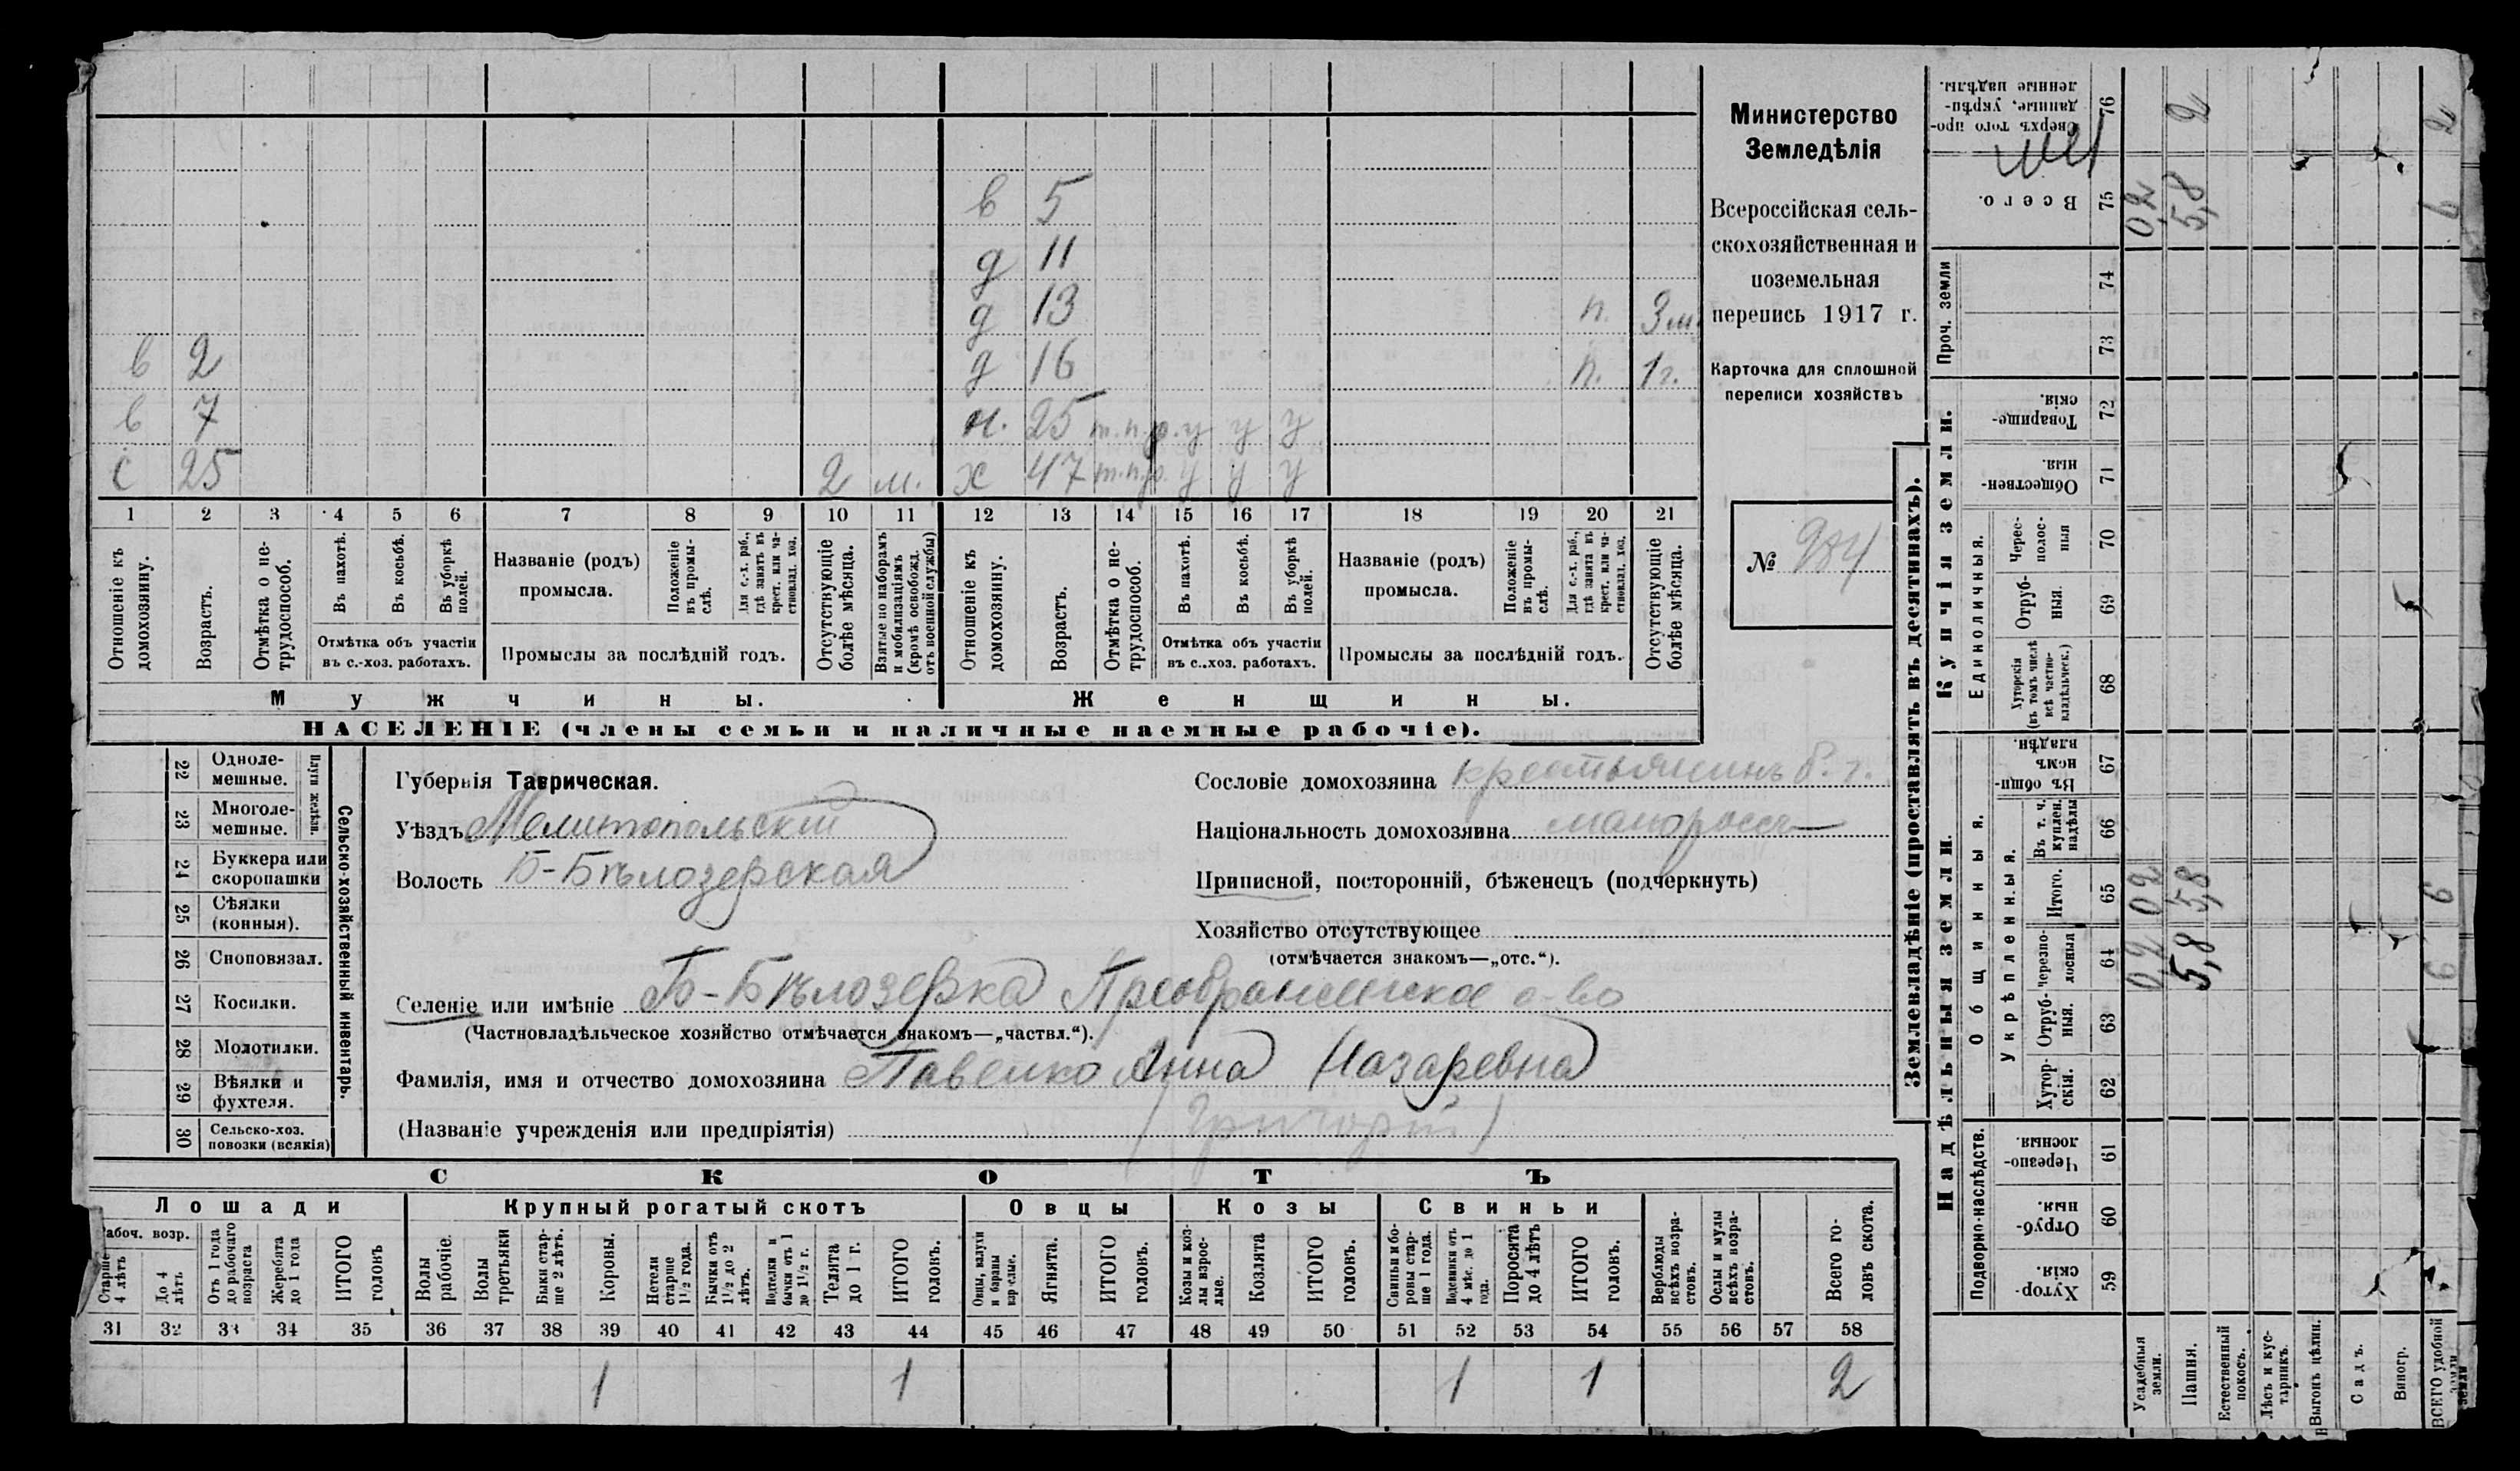 в 5
д 11
д 13 п. 3 м.
в 2 д 16 п. 1 г.
в 7 н. 25 т.п.р. у у у
с 25 2 м. х 47 т.п.р. у у у
1 2 3 4 5 6 7 8 9 10 11 12 13 14 15 16 17 18 19 20 21
Отношеніе къ домохозяину.
Возрастъ.
Отмѣтка о не-трудоспособ.
Въ пахотѣ.
Въ косьбѣ.
Въ уборкѣ полей.
Отмѣтка объ участіи въ с.-хоз. работахъ.
Названіе (родъ) промысла.
Положеніе въ промы-слѣ.
Для с.-х. раб., гдѣ занятъ въ крест. или ча-стновлад. хоз.
Промыслы за послѣдній годъ.
Отсутствующіе болѣе мѣсяца.
Взятые по наборамъ и мобилизаціямъ (кромѣ освобожд. отъ военной службы)
Отношеніе къ домохозяину.
Возрастъ.
Отмѣтка о не-трудоспособ.
Въ пахотѣ.
Въ косьбѣ.
Въ уборкѣ полей.
Отмѣтка объ участіи въ с.-хоз. работахъ.
Названіе (родъ) промысла.
Положеніе въ промы-слѣ.
Для с.-х. раб., гдѣ занята въ крест. или ча-стновлад. хоз.
Промыслы за послѣдній годъ.
Отсутствующіе болѣе мѣсяца.
Мужчины. Женщины.
НАСЕЛЕНІЕ (члены семьи и наличные наемные рабочіе).
Министерство
Земледѣлія
Всероссійская сель-
скохозяйственная и
поземельная
перепись 1917 г.
Карточка для сплошной
переписи хозяйствъ
№ 984
22 Одноле-мешные.
23 Многоле-мешные.
Плуги желѣзн.
24 Буккера или скоропашки
25 Сѣялки (конныя).
26 Сноповязал.
27 Косилки.
28 Молотилки.
29 Вѣялки и фухтеля.
30 Сельско-хоз. повозки (всякія)
Сельско-хозяйственный инвентарь.
Губернія Таврическая.
Уѣздъ Мелитопольскій
Волость Б-Бѣлозерская
Сословіе домохозяина крестьянинъ б. г.
Національность домохозяина малороссъ
Приписной, посторонній, бѣженецъ (подчеркнуть)
Хозяйство отсутствующее
(отмѣчается знакомъ—„отс.“).
Селеніе или имѣніе Б-Бѣлозерка Преображенское о-во
(Частновладѣльческое хозяйство отмѣчается знакомъ—„частвл.“).
Фамилія, имя и отчество домохозяина Павенко Анна Назаревна
(Названіе учрежденія или предпріятія) (Григорій)
СКОТЪ
Лошади Крупный рогатый скотъ Овцы Козы Свиньи
Рабоч. возр.
Старше 4 лѣтъ
До 4 лѣтъ
Отъ 1 года до рабочаго возраста
Жеребята до 1 года
ИТОГО головъ
Волы рабочіе.
Волы третьяки
Быки стар-ше 2 лѣтъ.
Коровы.
Нетели старше 1½ года.
Бычки отъ 1½ до 2 лѣтъ.
Подтелки и бычки отъ 1 до 1½ г.
Телята до 1 г.
ИТОГО головъ.
Овцы, валухи и бараны взрослые.
Ягнята.
ИТОГО головъ.
Козы и коз-лы взрос-лые.
Козлята
ИТОГО головъ.
Свиньи и бо-ровы стар-ше 1 года.
Подсвинки отъ 4 мѣс. до 1 года.
Поросята до 4 лѣтъ
ИТОГО головъ.
Верблюды всѣхъ возра-стовъ.
Ослы и мулы всѣхъ возра-стовъ.
Всего го-ловъ скота.
31 32 33 34 35 36 37 38 39 40 41 42 43 44 45 46 47 48 49 50 51 52 53 54 55 56 57 58
1 1 1 1 2
Землевладѣніе (проставлять въ десятинахъ).
Надѣльныя земли. Купчія земли.
Проч. земли
Подворно-наслѣдств.
Общинныя.
Укрѣпленныя.
Единоличныя.
59 Хутор-скія.
60 Отруб-ныя.
61 Черезпо-лосныя
62 Хутор-скія.
63 Отруб-ныя.
64 Черезпо-лосныя 0,2 5,8 6
65 Итого. 0,2 5,8 6
66 Въ т. ч. куплен. надѣлы
67 Въ общи-номъ владѣн.
68 Хуторскія (въ томъ числѣ всѣ частно-владѣльческ.)
69 Отруб-ныя.
70 Черес-полос-ныя
71 Обществен-ныя.
72 Товарище-скія.
73
74
75 Всего. 0,2 5,8 6
76 Сверхъ того про-данные, укрѣп-ленные надѣлы. 2 2
Усадебныя земли.
Пашня.
Естественный покосъ.
Лѣсъ и кус-тарникъ.
Выгонъ цѣлин.
Садъ.
Виногр.
ВСЕГО удобной земли